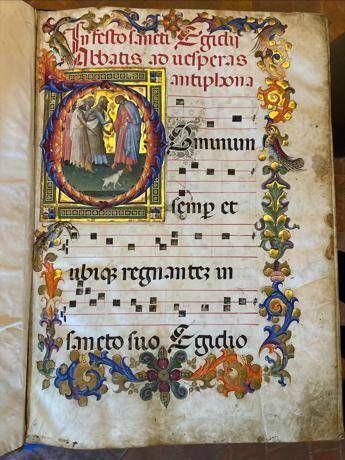 In festo sancti Egidii
Abbatis ad uesperas
antiphona
Ominum
semp et
ubiqz regnantez in
sancto suo Egidio